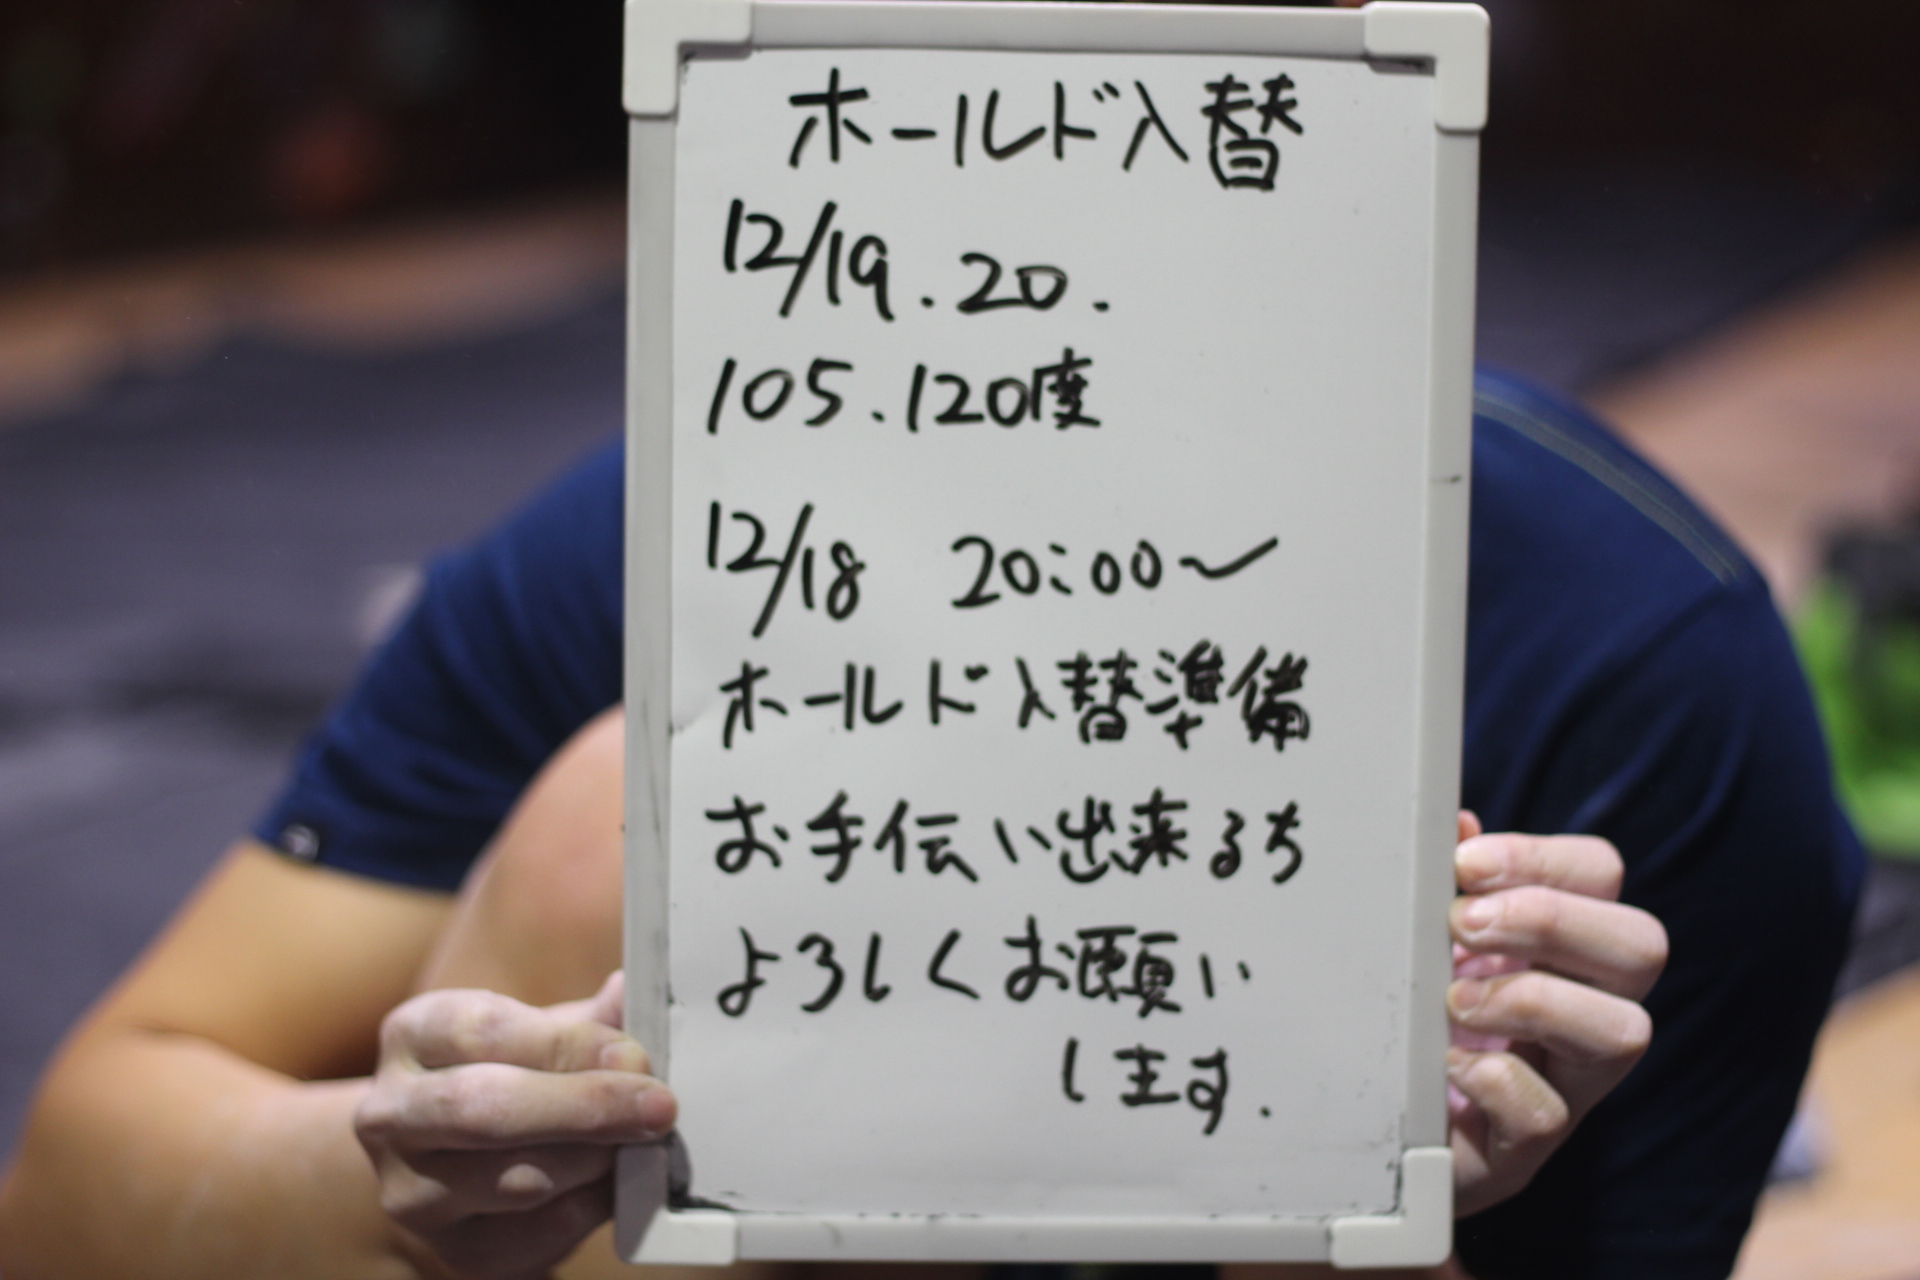 ホールド入替
12/19.20.
105.120度
12/18 20:00〜
ホールド入替準備
お手伝い出来る方
よろしくお願い
します.